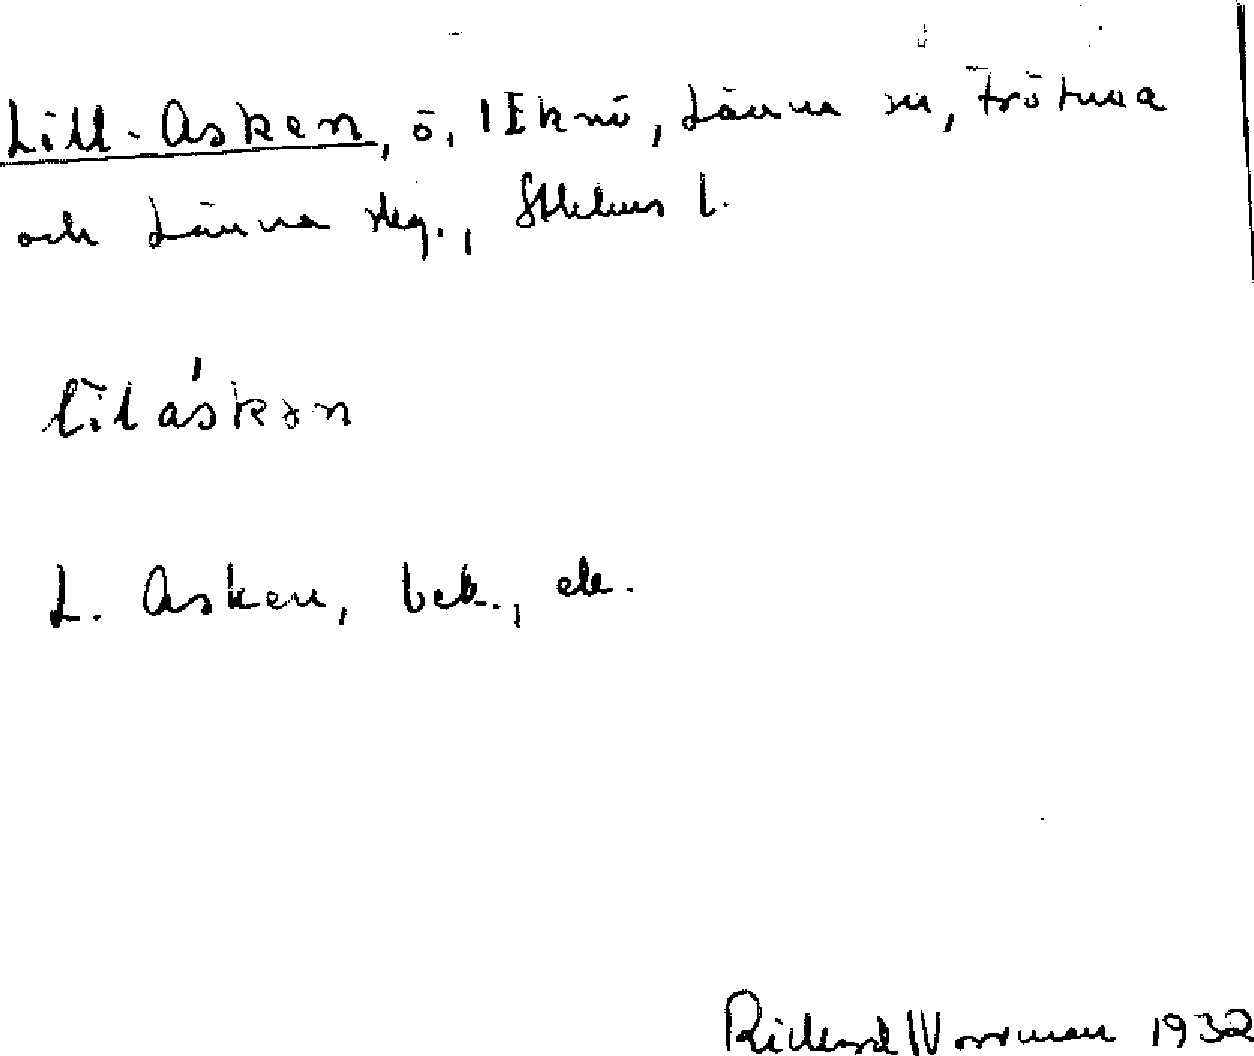 Lill-Asken, ö, 1 Eknö, Länna sn, Frötuna
och Länna skg., Sthlms l.
lìláskən
L. Asken, bek., ek.
Richard Norrman 1932